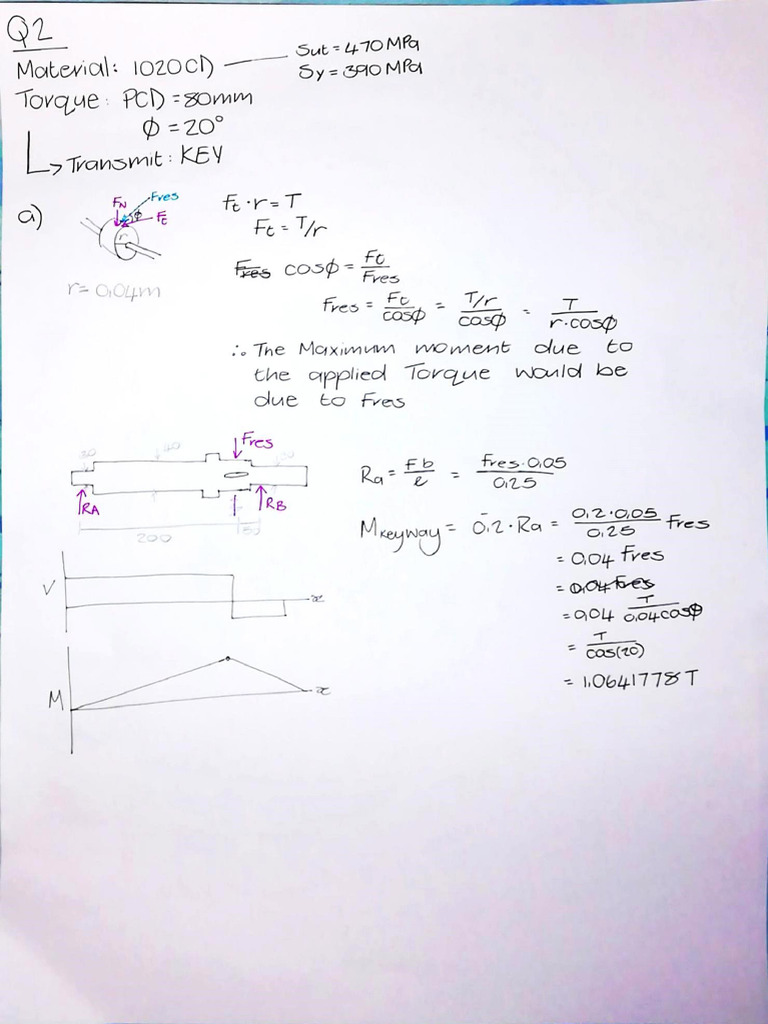 Q2
Material: 1020CD
Sut = 470 MPa
Sy = 390 MPa
Torque: PCD = 80mm
Ø = 20°
Transmit: KEY
a)
FN
Fres
Ft
ϕ
r
r = 0,04m
Ft · r = T
Ft = T/r
cosϕ = Ft/Fres
Fres = Ft/cosϕ = T/r/cosϕ = T/r·cosϕ
∴ The Maximum moment due to
the applied Torque would be
due to Fres
30
40
Fres
RA
RB
200
50
Ra = Fb/ℓ = Fres·0,05/0,25
Mkeyway = 0,2·Ra = 0,2·0,05/0,25 Fres
= 0,04 Fres
= 0,04 Fres
= 0,04 T/0,04cosϕ
= T/cos(20)
= 1,0641778T
V
x
M
x